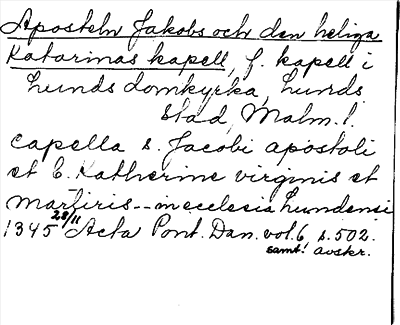 Aposteln Jakobs och den heliga
Katarinas kapell, f. kapell i
Lunds domkyrka, Lunds
stad, Malm. l.
capella s. Jacobi apostoli
et b. Katherine virginis et
martiris -- in ecclesia Lundensi
1345 28/11 Acta Pont. Dan. vol. 6, s. 502.
samt! avskr.